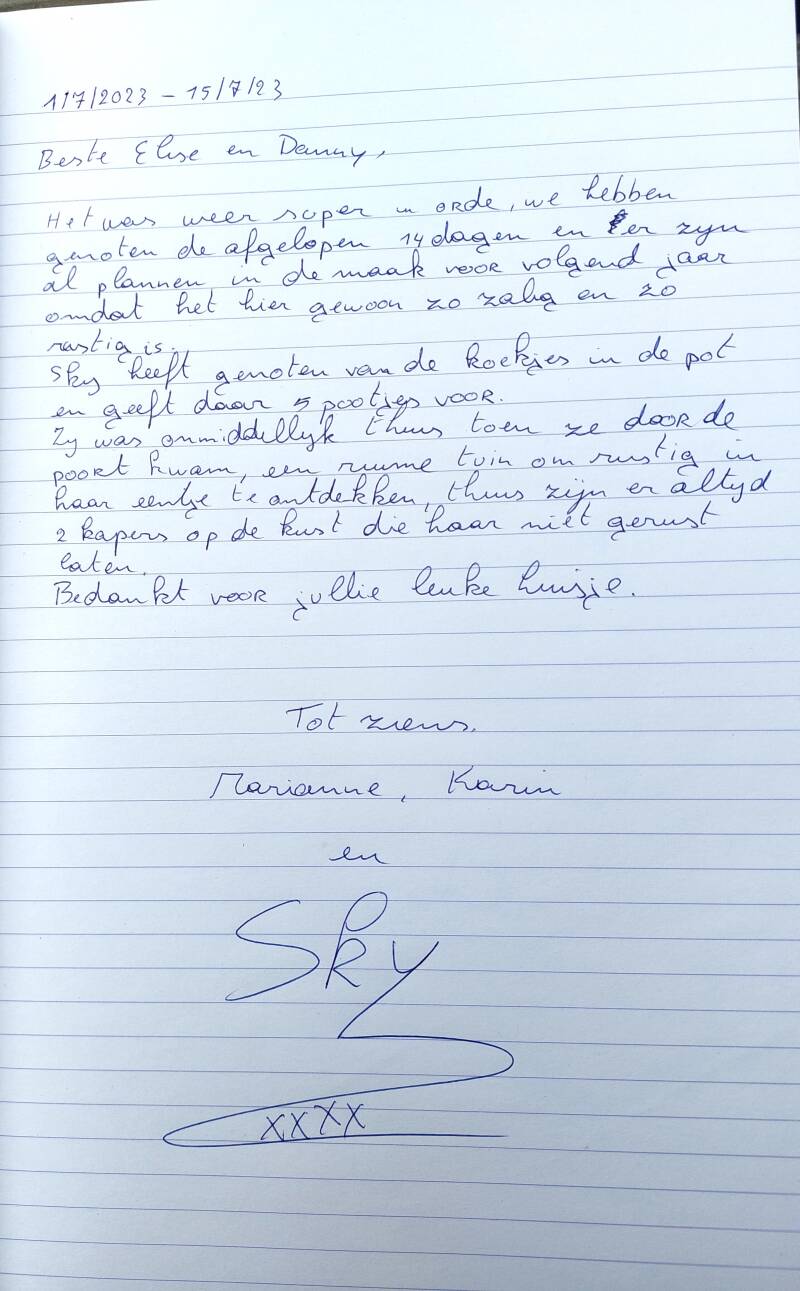 1/7/2023 - 15/7/23
Beste Elise en Danny,
Het was weer super in orde, we hebben
genoten de afgelopen 14 dagen en er zijn
al plannen in de maak voor volgend jaar
omdat het hier gewoon zo zalig en zo
rustig is.
Sky heeft genoten van de koekjes in de pot
en geeft daar 5 pootjes voor.
Zij was onmiddellijk thuis toen ze door de
poort kwam, een ruime tuin om rustig in
haar eentje te ontdekken, thuis zijn er altijd
2 kapers op de kust die haar niet gerust
laten.
Bedankt voor jullie leuke huisje.
Tot ziens.
Marianne, Karin
en
Sky
xxxx